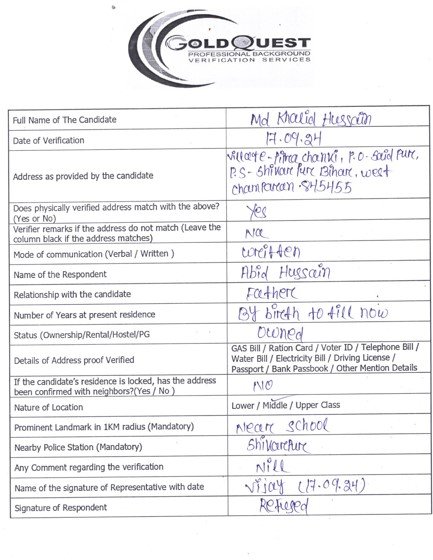 GOLDQUEST
PROFESSIONAL BACKGROUND
VERIFICATION SERVICES
Full Name of The Candidate Md Khalid Hussain
Date of Verification 17.09.24
Address as provided by the candidate village- Pipra chanki, P.O- Said Pur,
P.S- Shikarpur Bihar, west
Champaran 845455
Does physically verified address match with the above? (Yes or No) Yes
Verifier remarks if the address do not match (Leave the column black if the address matches) Na
Mode of communication (Verbal / Written ) written
Name of the Respondent Abid Hussain
Relationship with the candidate Father
Number of Years at present residence By birth to till now
Status (Ownership/Rental/Hostel/PG owned
Details of Address proof Verified GAS Bill / Ration Card / Voter ID / Telephone Bill /
Water Bill / Electricity Bill / Driving License /
Passport / Bank Passbook / Other Mention Details
If the candidate's residence is locked, has the address been confirmed with neighbors?(Yes / No ) NO
Nature of Location Lower / Middle / Upper Class
Prominent Landmark in 1KM radius (Mandatory) Near school
Nearby Police Station (Mandatory) Shikarpur
Any Comment regarding the verification Nill
Name of the signature of Representative with date Vijay (17.09.24)
Signature of Respondent Refused